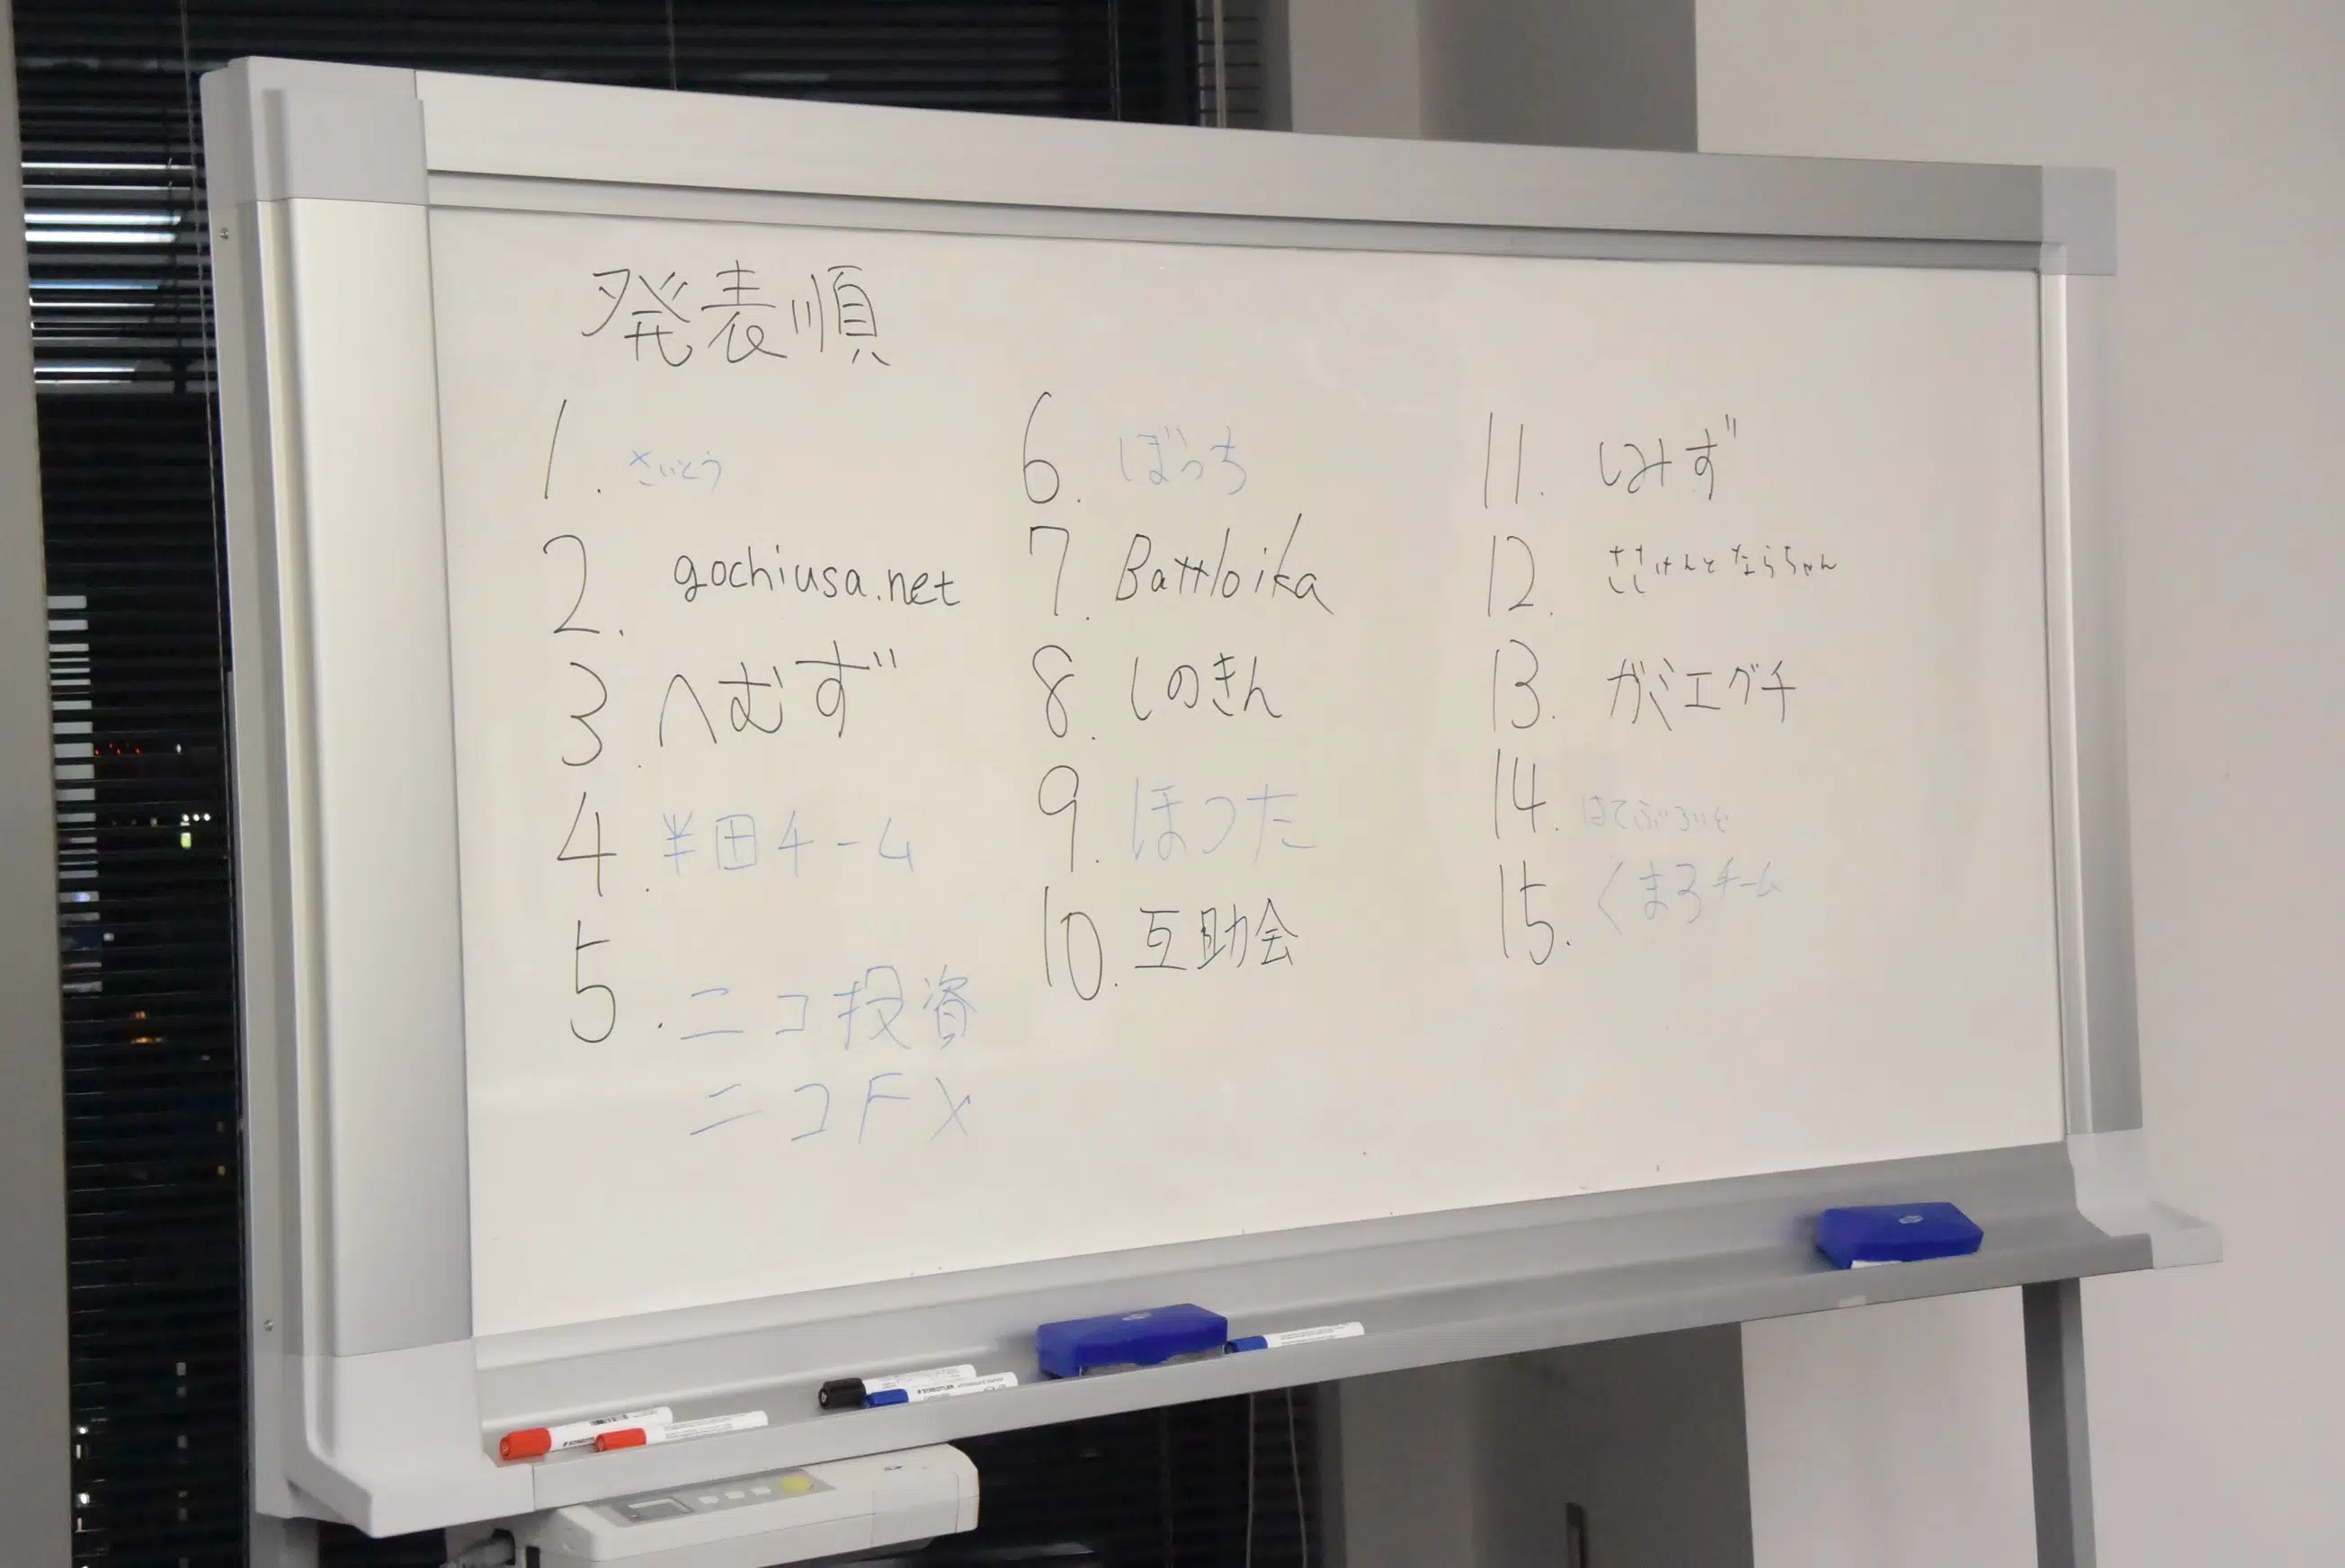 発表順
1. さいとう
2. gochiusa.net
3. へむず
4. 半田チーム
5. ニコ投資
ニコFX
6. ぼっち
7. Battloika
8. しのきん
9. ほった
10. 互助会
11. しみず
12. ささけんとならちゃん
13. ガミエグチ
14.
15. くまろチーム
STAEDTLER